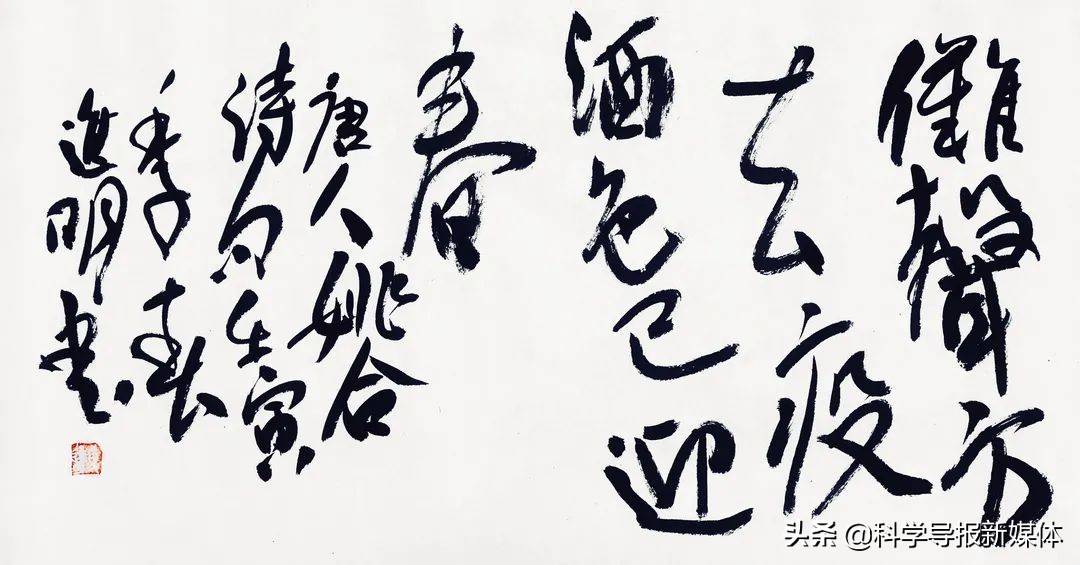 儺聲方
去疫
酒色已迎
春
唐人姚合
詩句壬寅
季春
進明書
头条 @科学导报新媒体